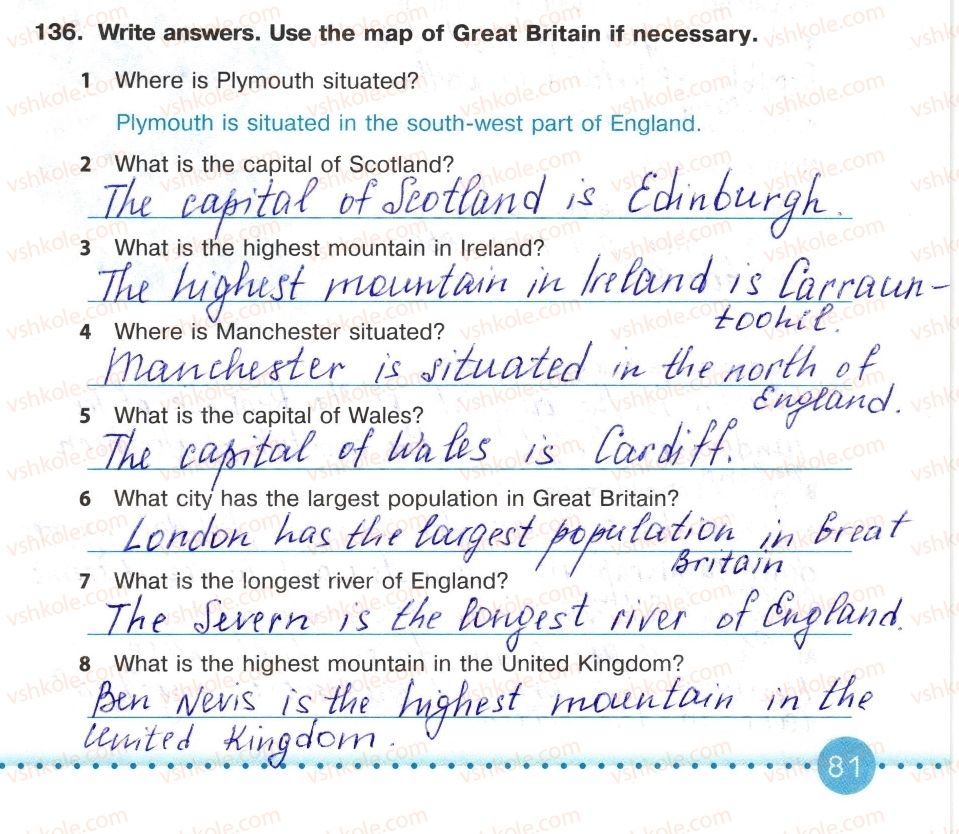 136. Write answers. Use the map of Great Britain if necessary.
1 Where is Plymouth situated?
Plymouth is situated in the south-west part of England.
2 What is the capital of Scotland?
The capital of Scotland is Edinburgh.
3 What is the highest mountain in Ireland?
The highest mountain in Ireland is Carraun-
toohil.
4 Where is Manchester situated?
Manchester is situated in the north of
England.
5 What is the capital of Wales?
The capital of Wales is Cardiff.
6 What city has the largest population in Great Britain?
London has the largest population in Great
Britain
7 What is the longest river of England?
The Severn is the longest river of England.
8 What is the highest mountain in the United Kingdom?
Ben Nevis is the highest mountain in the
United Kingdom.
81
vshkole.com